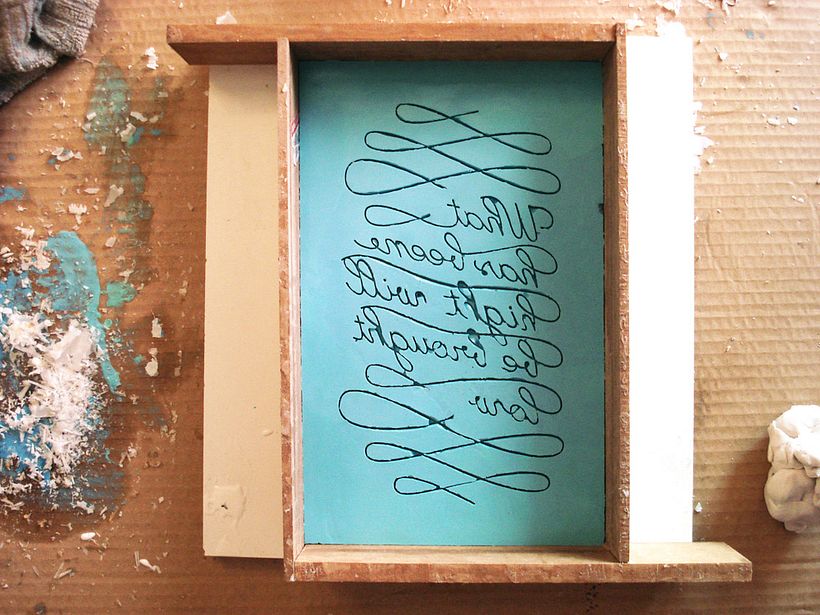 What
has beene
hight will
be brought
low